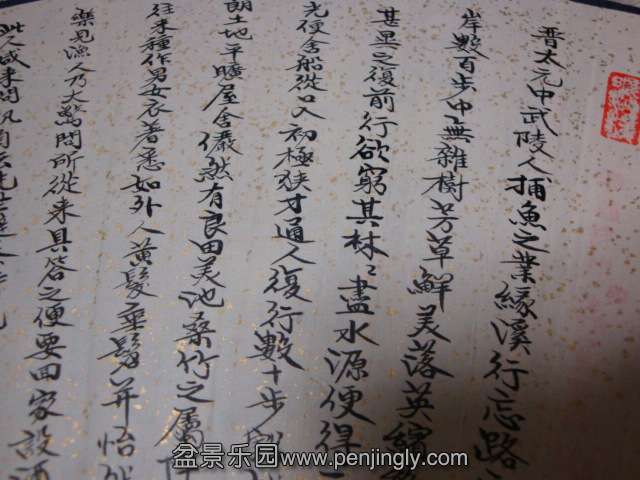 晋太元中武陵人捕魚之業緣溪行忘路
岸數百步中無雜樹芳草鮮美落英繽
甚異之復前行欲窮其林〻盡水源便得
光便舍船從口入初極狹才通人復行數十步
朗土地平曠屋舍儼然有良田美池桑竹之屬
往来種作男女衣著悉如外人黃髮垂髫并怡
樂見漁人乃大驚問所從来具答之便要田家設酒
此人咸来問
盆景乐园 www.penjingly.com